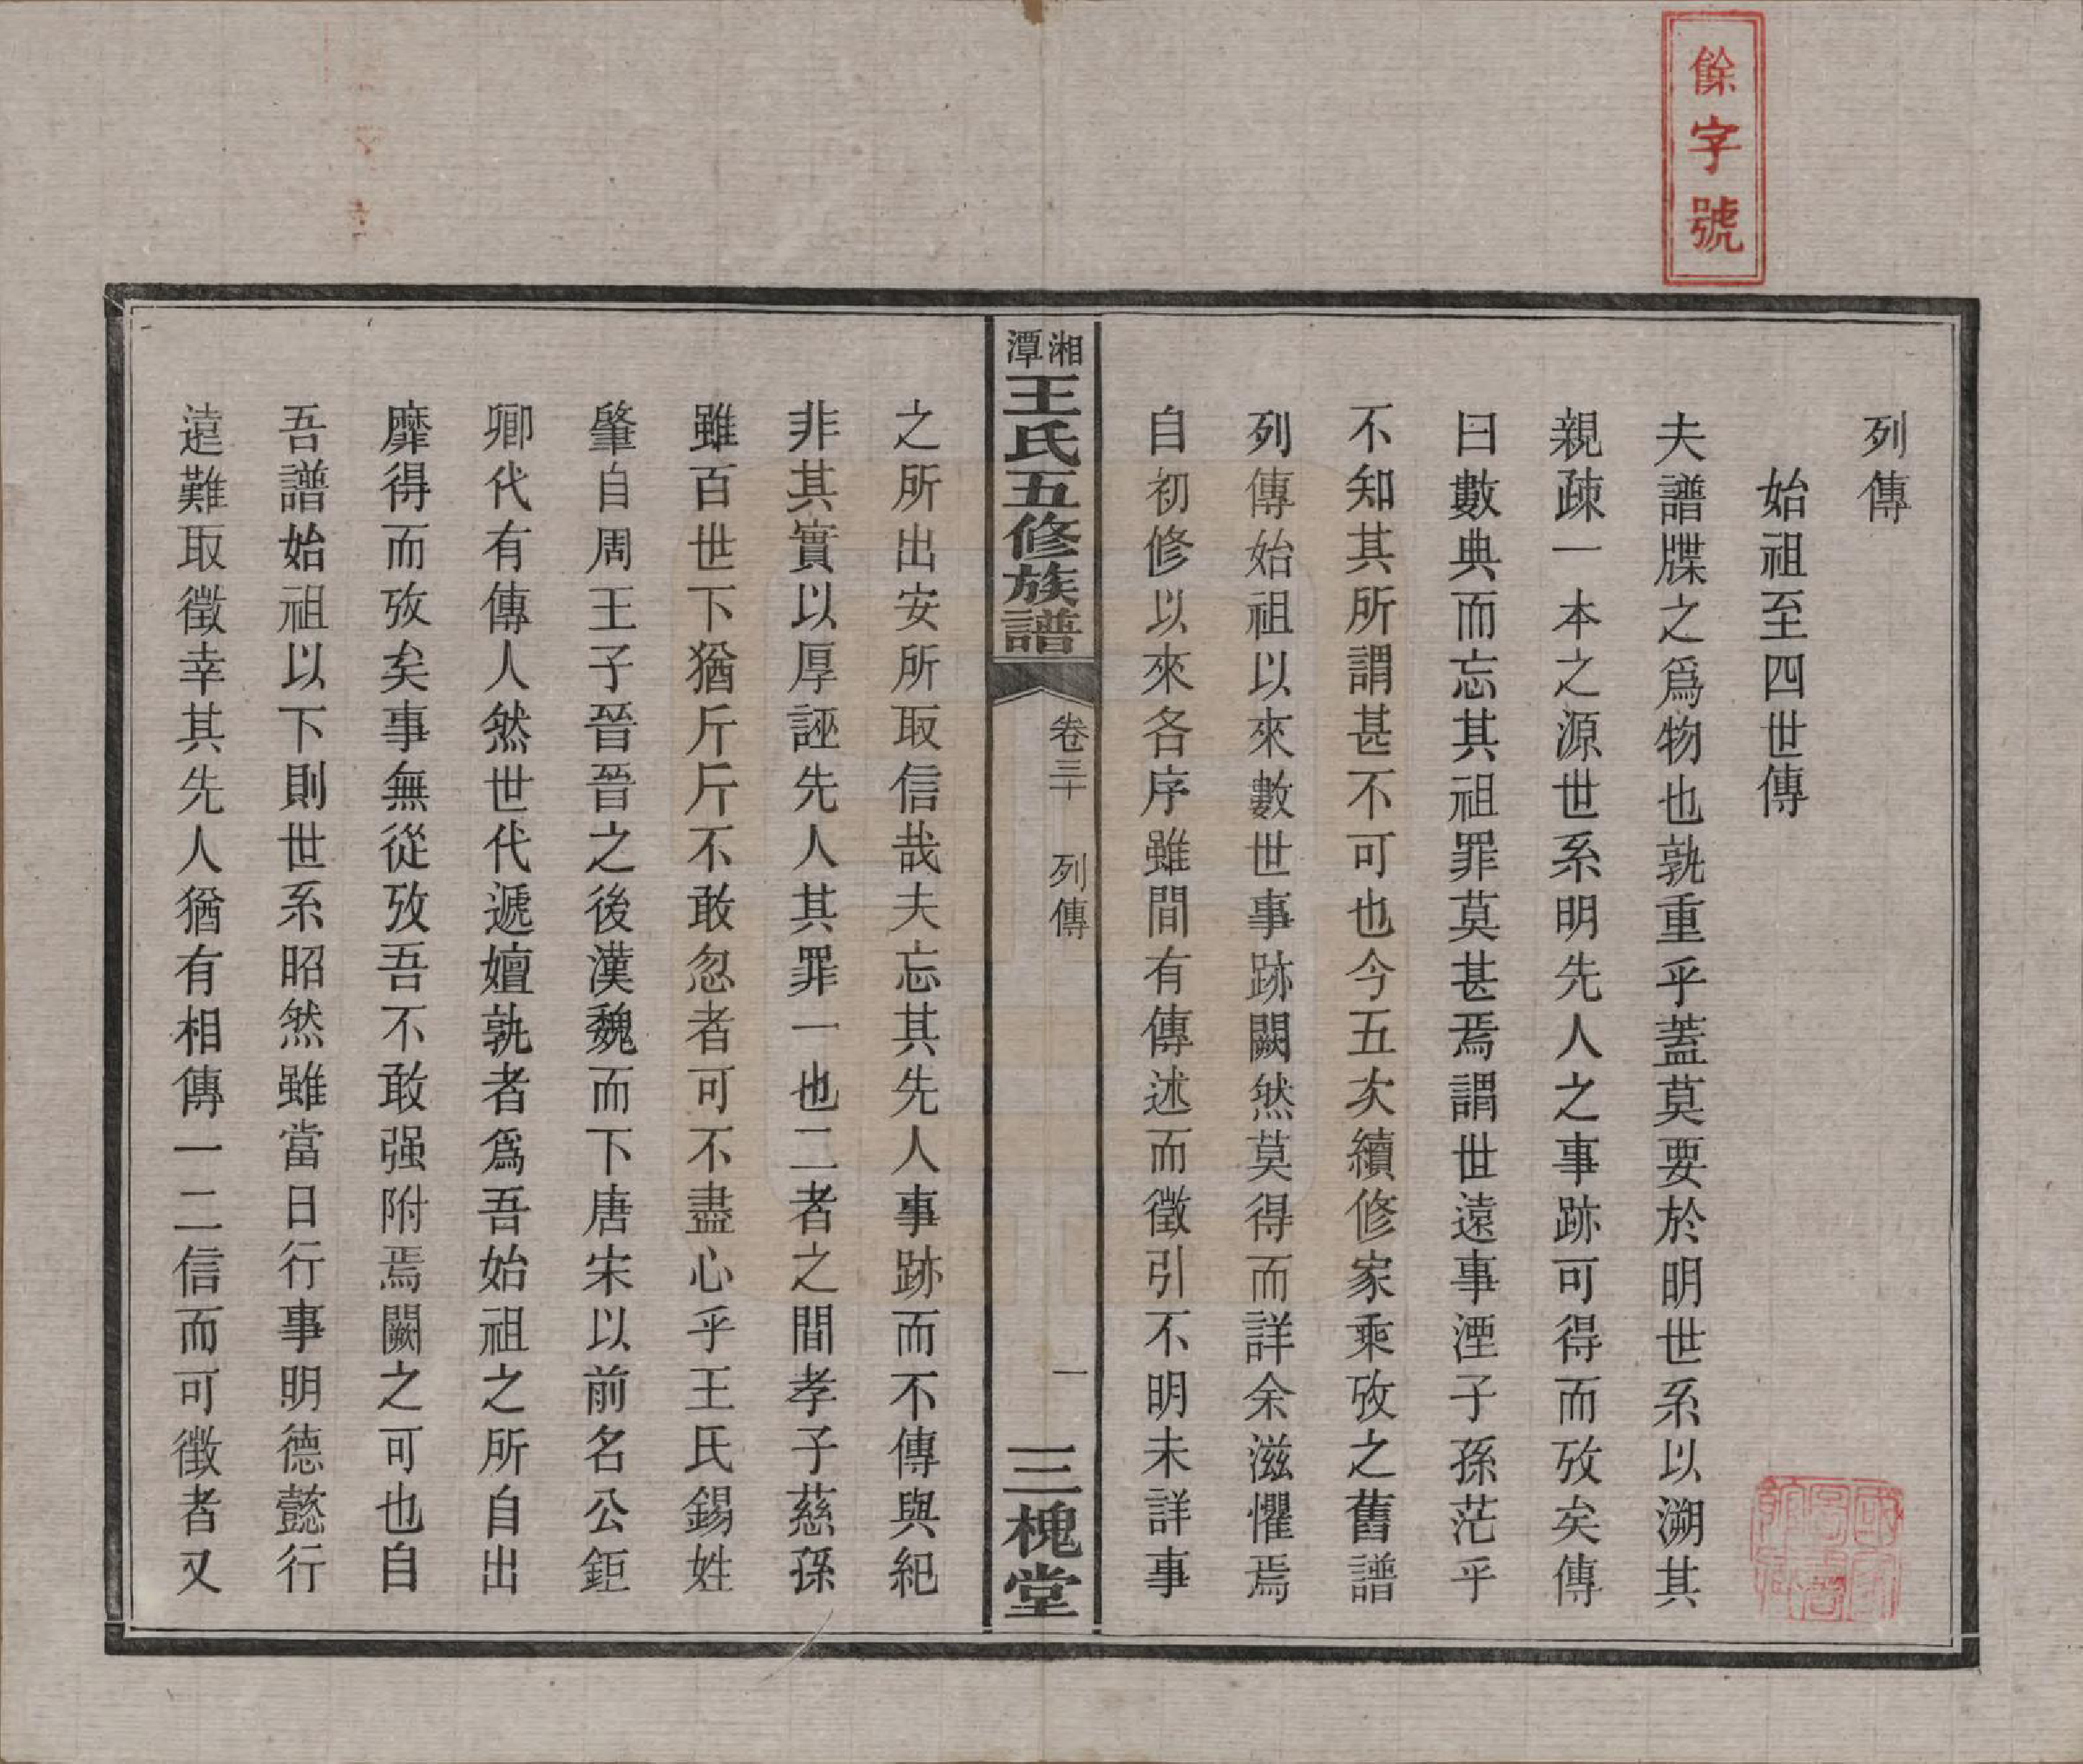 餘字號
列傳
始祖至四世傳
夫譜牒之爲物也孰重乎蓋莫要於明世系以溯其
親疎一本之源世系明先人之事跡可得而攷矣傳
曰數典而忘其祖罪莫甚焉謂世遠事湮子孫茫乎
不知其所謂甚不可也今五次續修家乘攷之舊譜
列傳始祖以來數世事跡闕然莫得而詳余滋懼焉
自初修以來各序雖間有傳述而徵引不明未詳事
湘潭王氏五修族譜
卷三十 列傳
一
三槐堂
之所出安所取信哉夫忘其先人事跡而不傳與紀
非其實以厚誣先人其罪一也二者之間孝子慈孫
雖百世下猶斤斤不敢忽者可不盡心乎王氏錫姓
肇自周王子晉晉之後漢魏而下唐宋以前名公鉅
卿代有傳人然世代遞嬗孰者爲吾始祖之所自出
靡得而攷矣事無從攷吾不敢强附焉闕之可也自
吾譜始祖以下則世系昭然雖當日行事明德懿行
遠難取徵幸其先人猶有相傳一二信而可徵者又